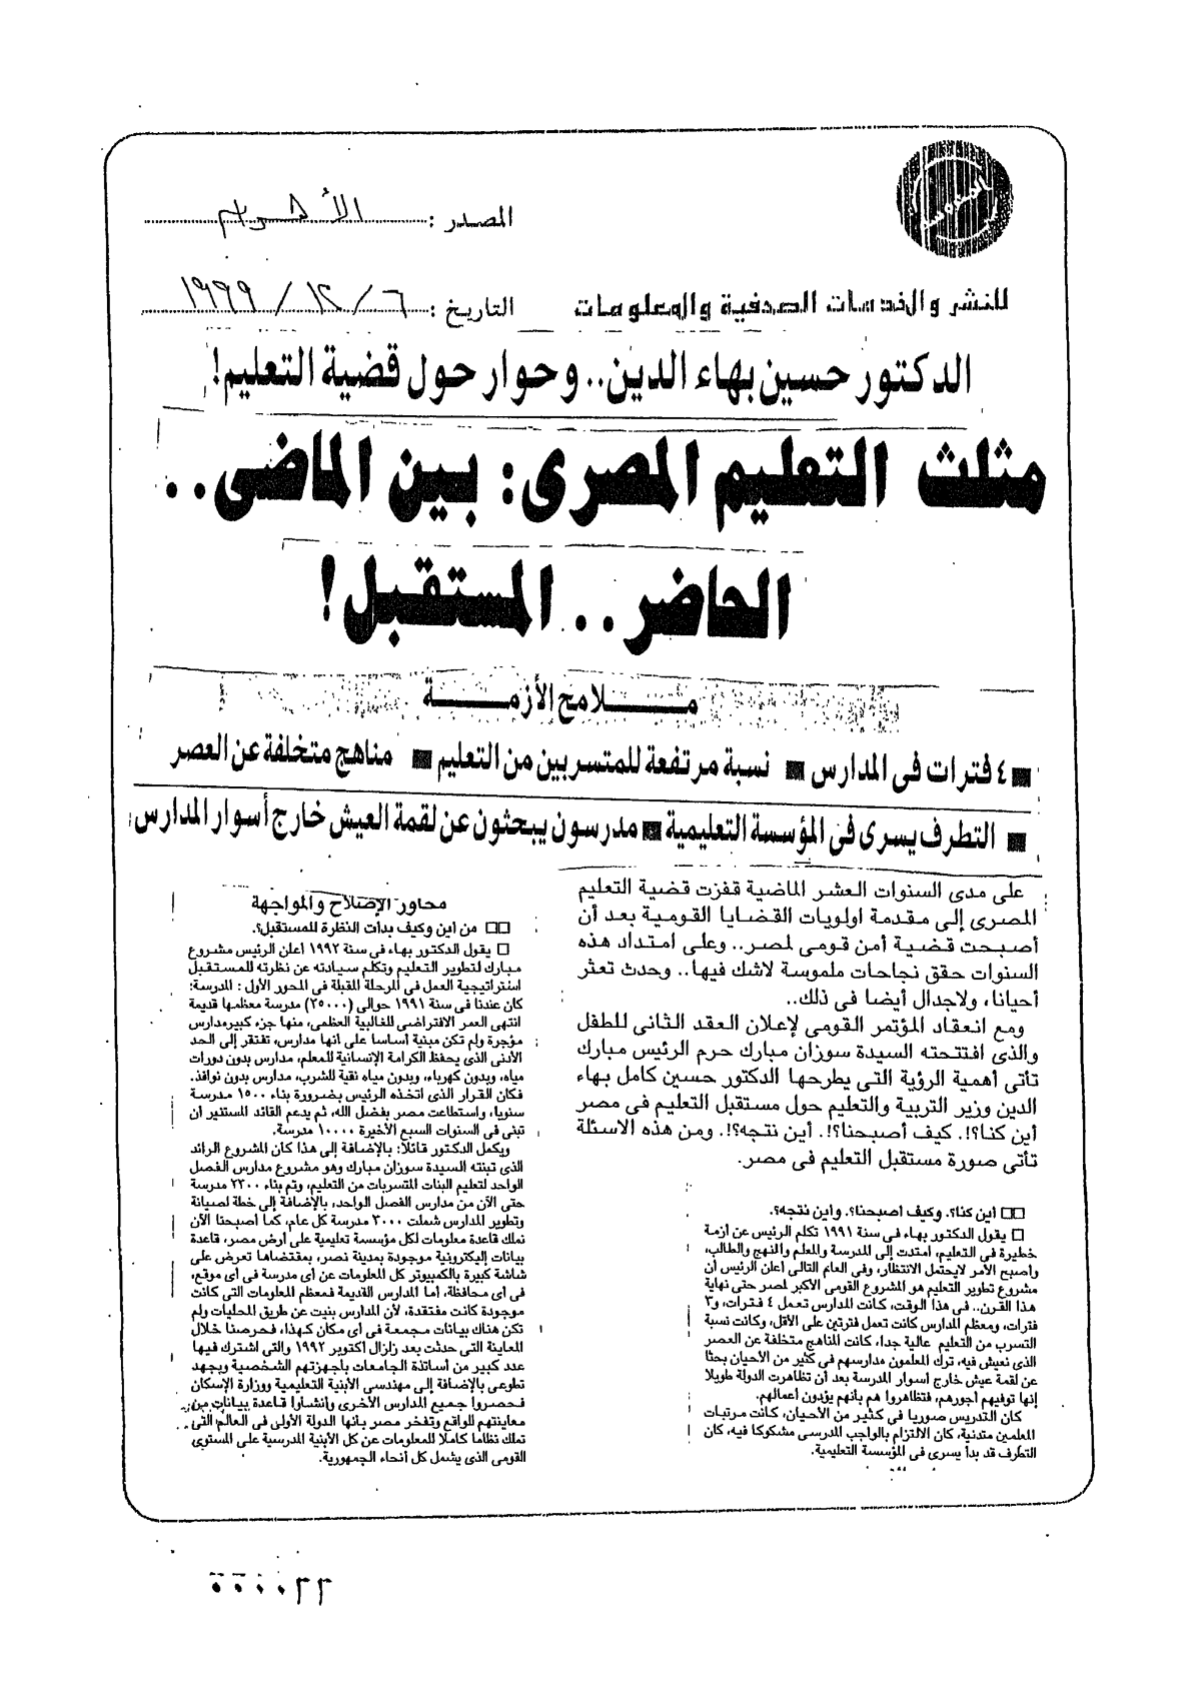 المصدر : الأهرام
للنشر والخدمات الصحفية والمعلومات
التاريخ : ٦ / ١٢ / ١٩٩٩
الدكتور حسين بهاء الدين.. وحوار حول قضية التعليم!
مثلث التعليم المصرى: بين الماضى..
الحاضر.. المستقبل!
مـــلامح الأزمـــة
■ ٤ فترات فى المدارس ■ نسبة مرتفعة للمتسربين من التعليم ■ مناهج متخلفة عن العصر
■ التطرف يسرى فى المؤسسة التعليمية ■ مدرسون يبحثون عن لقمة العيش خارج أسوار المدارس
على مدى السنوات العشر الماضية قفزت قضية التعليم
المصرى إلى مقدمة اولويات القضايا القومية بعد أن
أصبحت قضية أمن قومى لمصر.. وعلى امتداد هذه
السنوات حقق نجاحات ملموسة لاشك فيها.. وحدث تعثر
أحيانا، ولاجدال أيضا فى ذلك..
ومع انعقاد المؤتمر القومى لإعلان العقد الثانى للطفل
والذى افتتحته السيدة سوزان مبارك حرم الرئيس مبارك
تأتى أهمية الرؤية التى يطرحها الدكتور حسين كامل بهاء
الدين وزير التربية والتعليم حول مستقبل التعليم فى مصر
أين كنا؟!. كيف أصبحنا؟!. أين نتجه؟!. ومن هذه الاسئلة
تأتى صورة مستقبل التعليم فى مصر.
□□ أين كنا؟. وكيف اصبحنا؟. واين نتجه؟.
□ يقول الدكتور بهاء فى سنة ١٩٩١ تكلم الرئيس عن أزمة
خطيرة فى التعليم، امتدت إلى المدرسة والمعلم والنهج والطالب،
وأصبح الأمر لايحتمل الانتظار، وفى العام التالى أعلن الرئيس أن
مشروع تطوير التعليم هو المشروع القومى الأكبر لمصر حتى نهاية
هذا القرن.. فى هذا الوقت، كانت المدارس تعمل ٤ فترات، و٣
فترات، ومعظم المدارس كانت تعمل فترتين على الأقل، وكانت نسبة
التسرب من التعليم عالية جدا، كانت المناهج متخلفة عن العصر
الذى نعيش فيه، ترك المعلمون مدارسهم فى كثير من الأحيان بحثا
عن لقمة عيش خارج أسوار المدرسة بعد أن تظاهرت الدولة طويلا
إنها توفيهم أجورهم، فتظاهروا هم بأنهم يؤدون أعمالهم.
كان التدريس صوريا فى كثير من الأحيان، كانت مرتبات
المعلمين متدنية، كان الالتزام بالواجب المدرسى مشكوكا فيه، كان
التطرف قد بدأ يسرى فى المؤسسة التعليمية.
محاور الإصلاح والمواجهة
□□ من اين وكيف بدأت النظرة للمستقبل؟.
□ يقول الدكتور بهاء فى سنة ١٩٩٢ أعلن الرئيس مشروع
مبارك لتطوير التعليم وتكلم سيادته عن نظرته للمستقبل
استراتيجية العمل فى المرحلة المقبلة فى المحور الأول : المدرسة:
كان عندنا فى سنة ١٩٩١ حوالى (٢٥٠٠٠) مدرسة معظمها قديمة
انتهى العمر الافتراضى للغالبية العظمى، منها جزء كبير مدارس
مؤجرة ولم تكن مبنية أساسا على انها مدارس، تفتقر إلى الحد
الأدنى الذى يحفظ الكرامة الإنسانية للمعلم، مدارس بدون دورات
مياه، وبدون كهرباء، وبدون مياه نقية للشرب، مدارس بدون نوافذ.
فكان القرار الذى اتخذه الرئيس بضرورة بناء ١٥٠٠ مدرسة
سنويا، واستطاعت مصر بفضل الله، ثم بدعم القائد المستنير ان
تبنى فى السنوات السبع الأخيرة ١٠٠٠٠ مدرسة.
ويكمل الدكتور قائلا: بالإضافة إلى هذا كان المشروع الرائد
الذى تبنته السيدة سوزان مبارك وهو مشروع مدارس الفصل
الواحد لتعليم البنات المتسربات من التعليم، وتم بناء ٢٣٠٠ مدرسة
حتى الآن من مدارس الفصل الواحد، بالإضافة إلى خطة لصيانة
وتطوير المدارس شملت ٣٠٠٠ مدرسة كل عام، كما أصبحنا الآن
نملك قاعدة معلومات لكل مؤسسة تعليمية على أرض مصر، قاعدة
بيانات إليكترونية موجودة بمدينة نصر، بمقتضاها تعرض على
شاشة كبيرة بالكمبيوتر كل المعلومات عن أى مدرسة فى أى موقع،
فى أى محافظة، أما المدارس القديمة فمعظم المعلومات التى كانت
موجودة كانت مفتقدة، لأن المدارس بنيت عن طريق المحليات ولم
تكن هناك بيانات مجمعة فى أى مكان كهذا، فحرصنا خلال
المعاينة التى حدثت بعد زلزال أكتوبر ١٩٩٢ والتى اشترك فيها
عدد كبير من أساتذة الجامعات بأجهزتهم الشخصية وبجهد
تطوعى بالإضافة إلى مهندسى الأبنية التعليمية ووزارة الإسكان
فحصروا جميع المدارس الأخرى وانشأوا قاعدة بيانات من
معاينتهم للواقع وتفخر مصر بأنها الدولة الأولى فى العالم التى
تملك نظاما كاملا للمعلومات عن كل الأبنية المدرسية على المستوى
القومى الذى يشمل كل أنحاء الجمهورية.